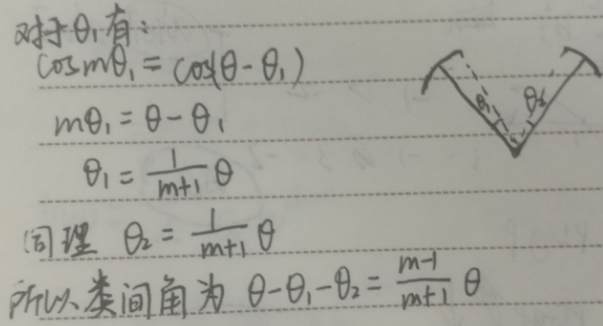 对于θ₁有：
cosmθ₁ = cos(θ-θ₁)
mθ₁ = θ-θ₁
θ₁ = 1/(m+1) θ
同理 θ₂ = 1/(m+1) θ
所以、类间角为 θ-θ₁-θ₂ = (m-1)/(m+1) θ
θ₁ θ₂